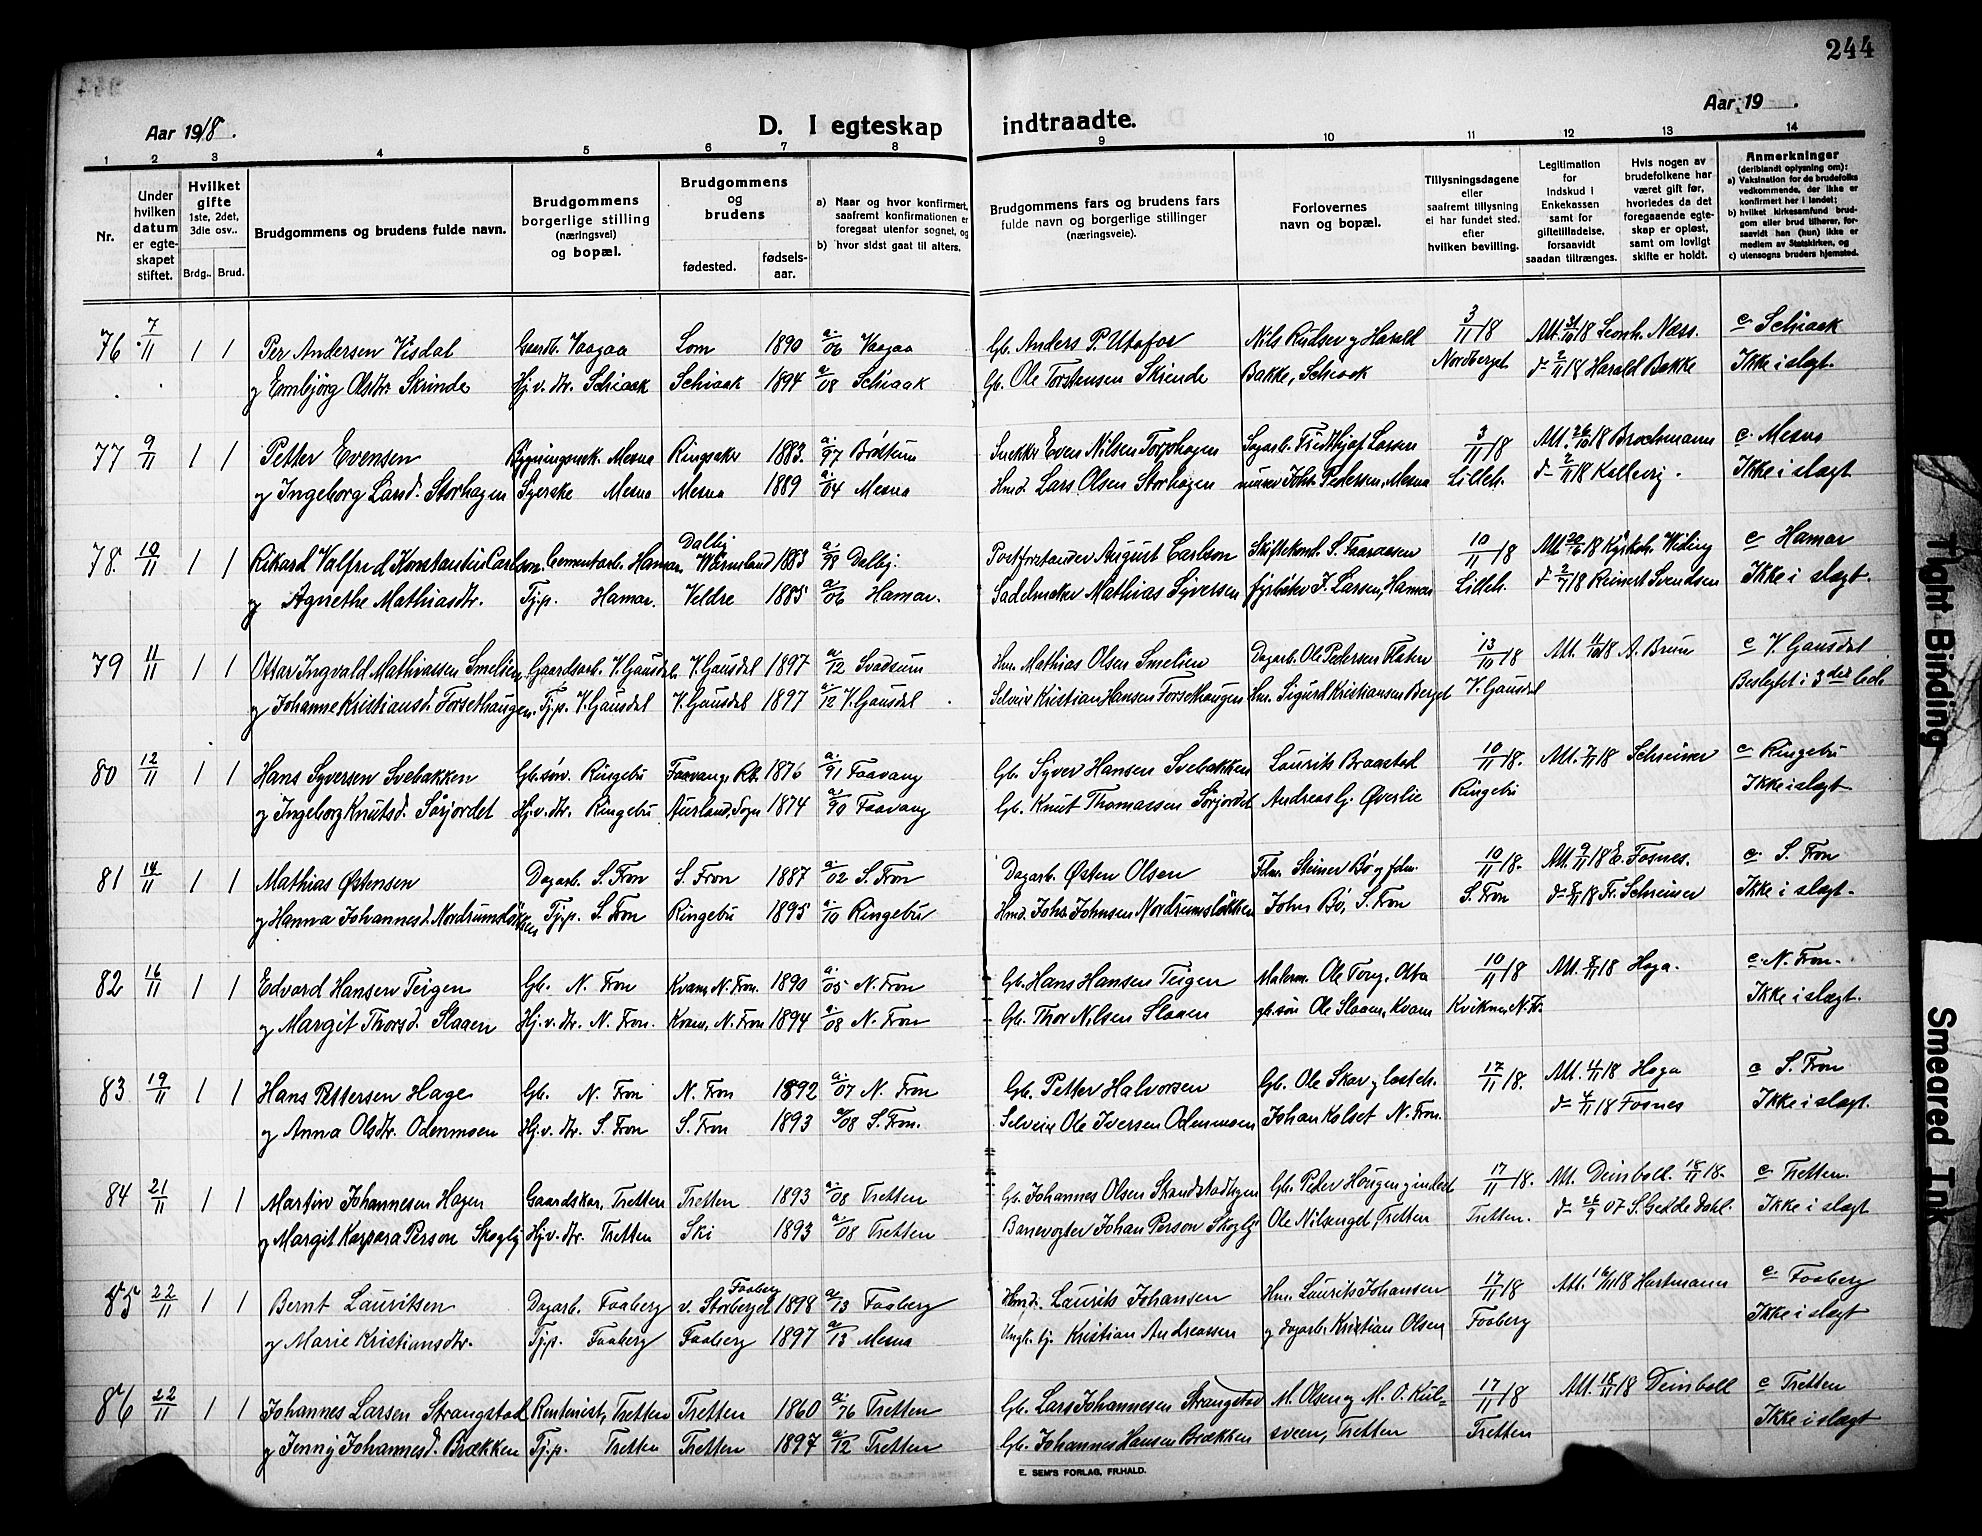 244
Aar 1918.
D. I egteskap indtraadte.
Aar 19 .
1 2 3 4 5 6 7 8 9 10 11 12 13 14
Nr.
Under hvilken datum er egteskapet stiftet.
Hvilket gifte 1ste, 2det, 3die osv..
Brdg.. Brud.
Brudgommens og brudens fulde navn.
Brudgommens borgerlige stilling (næringsvei) og bopæl.
Brudgommens og brudens
fødested.
fødselsaar.
a) Naar og hvor konfirmert, saafremt konfirmationen er foregaat utenfor sognet, og
b) hvor sidst gaat til alters.
Brudgommens fars og brudens fars fulde navn og borgerlige stillinger (næringsveie).
Forlovernes navn og bopæl.
Tillysningsdagene eller saafremt tillysning ei har fundet sted, efter hvilken bevilling.
Legitimation for Indskud i Enkekassen samt for giftetilladelse, forsaavidt saadan tiltrænges.
Hvis nogen av brudefolkene har været gift før, hvorledes da det foregaaende egteskap er opløst, samt om lovligt skifte er holdt.
Anmerkninger (deriblandt oplysning om):
a) Vaksination for de brudefolks vedkommende, der ikke er konfirmert her i landet;
b) hvilket kirkesamfund brudgom eller brud tilhører, forsaavidt han (hun) ikke er medlem av Statskirken, og
c) utensogns bruders hjemsted.
76 7/11 1 1 Per Andersen Visdal Gaardb. Vaagaa Lom 1890 a. 06 Vaagaa Gb. Anders P. Utafor Nils Rudser og Harald 3/11 18 Att. 31/10 18 Leonh. Næss. c Schiaak
og Embjörg Olsdtr. Skrinde Hj.v. dr. Schiaak Schiaak 1894 a/08 Schiaak Gb. Ole Torstensen Skriende Bakke, Schiaak Nordberget d- 2/11 18 Harald Bakke Ikke i slægt.
77 9/11 1 1 Petter Evensen Bygningssnek. Mesna Ringsaker 1883. a. 97 Bröttum Snekker Even Nilsen Torphagen Sagarb. Fredthjof Larsen 3/11 18 Att. 26/10 18 Brochmann c. Mesna
og Ingeborg Larsd. Storhagen Syerske Mesna Mesna 1889 a. 04 Mesna Hmd. Lars Olsen Storhagen murer Joh. Pedersen, Mesna Lilleh. d- 2/11 18 Kallevig. Ikke i slægt
78. 10/11 1 1 Rikard Valfred Konstantin Carlson. Cementarb. Hamar. Dalby Wärmeland 1883 a. 98 Dalby. Postforstander August Carlson Skiftekond. S. Thorassen 10/11 18 Att 20/6 18 Kyrkoh. Widing c Hamar
og Agnethe Mathiasdtr. Tj.p. Hamar. Veldre 1885 a/06 Hamar. Sadelmaker Mathias Syversen fyrböter J. Larsen, Hamar Lilleh. d- 2/7 18 Reinert Svendsen Ikke i slægt.
79 11/11 1 1 Ottar Ingvald Mathiassen Smelien Gaardsarb. V. Gausdal. V. Gausdal 1897 a. 12 Svadsum Hm. Mathias Olsen Smelien Dagarb. Ole Pedersen Flaten 13/10 18 Att. 11/10 18 A. Brun c V. Gausdal
og Johanne Kristiansd. Forsethaugen. Tj.p. V. Gausdal V. Gausdal 1897 a. 12 V. Gausdal. Selveier Kristian Hansen Forsethaugen Hm. Sigurd Kristiansen Berget V. Gausdal Beslegtet i 3die led.
80 12/11 1 1 Hans Syversen Svebakken Gb. søn. Ringebu Faavang, Rb. 1876 a. 91 Faavang Gb. Syver Hansen Svebakken Laurits Braastad 10/11 18. Att. 7/11 18 Schreiner c Ringebu
og Ingeborg Knutsd. Sörjordet Hj.v.dr. Ringebu Aurland, Sogn 1874 a/90 Faavang Gb. Knut Thomassen Sörjordet Andreas G. Øverlie Ringebu Ikke i slægt
81 14/11 1 1 Mathias Østensen Dagarb. S. Fron S. Fron 1887 a. 02 S. Fron Dagarb. Østen Olsen Fdm. Steiner Bø og fdm. 10/11 18. Att. 9/11 18 E. Fosnes. c. S. Fron
og Hanna Johannesd. Nordrumsløkken Tj.p. S. Fron Ringebu 1895 a/10 Ringebu Hmd. Johs Johnsen Nordrumsløkken John Bø, S. Fron S. Fron d- 8/11 18 Fr. Schreiner Ikke i slægt.
82 16/11 1 1 Edvard Hansen Teigen Gb. N. Fron Kvam, N. Fron. 1890 a. 05 N. Fron Gb. Hans Hansen Teigen Malerm. Ole Tong, Otta 10/11 18 Att. 8/11 18 Haga. c. N. Fron.
og Margit Thorsd. Slaaen Hj.v.dr. N. Fron. Kvam, N. Fron 1894 a. 08 N. Fron Gb. Thor Nilsen Slaaen gb. søn Ole Slaaen, Kvam Kvikne, N. Fr. Ikke i slægt.
83 19/11 1 1 Hans Pettersen Hage Gb. N. Fron N. Fron 1892 a. 07 N. Fron Gb. Petter Halvorsen Gb. Ole Skar og lostch. 17/11 18. Att. 4/11 18 Haga c S. Fron
og Anna Olsdtr. Odenmoen Hj.v. dr. S. Fron S. Fron 1893 a/08 S. Fron. Selveier Ole Iversen Odenmoen Johan Kolset N. Fron. d- 4/11 18 Fosnes Ikke i slægt.
84 21/11 1 1 Martin Johannesen Hagen Gaardskar, Tretten Tretten 1893 a/08 Tretten Gb. Johannes Olsen Strandstadhagen Gb. Peter Haugen 17/11 18. Att. Deinboll. 18/11 18. c Tretten.
og Margit Kaspara Person Skogly Hj.v. dr. Tretten Ski 1893 a/08 Tretten Banevogter Johan Person Skogly Ole Nilsengel Tretten Tretten. d- 26/9 07 S. Getde Dahl. Ikke i slægt
85 22/11 1 1 Bernt Lauritsen Dagarb. Faaberg v. Storberget Faaberg 1898 a/13 Faaberg Hmd. Laurits Johansen Hm. Laurits Johansen 17/11 18 Att. 16/11 18 Hartmann c Faaberg
og Marie Kristiansdtr. Tj.p. Faaberg Faaberg 1897 a/13 Mesna Ungk. tj. Kristian Andreassen og dagarb. Kristian Olsen Faaberg Ikke i slægt
86 22/11 1 1 Johannes Larsen Strangstad Rentenist, Tretten Tretten 1860 a. 76 Tretten Gb. Lars Johannesen Strangstad M. Olsen og M. O. Kul- 17/11 18 Att. 18/11 18 Deinboll c Tretten
og Jenny Johannesd. Brækken Tj.p. Tretten Tretten 1897 a/12 Tretten Gb. Johannes Hansen Brækken sveen, Tretten Tretten Ikke i slægt
E. SEM'S FORLAG, FR.HALD.
Tight Binding
Smeared Ink